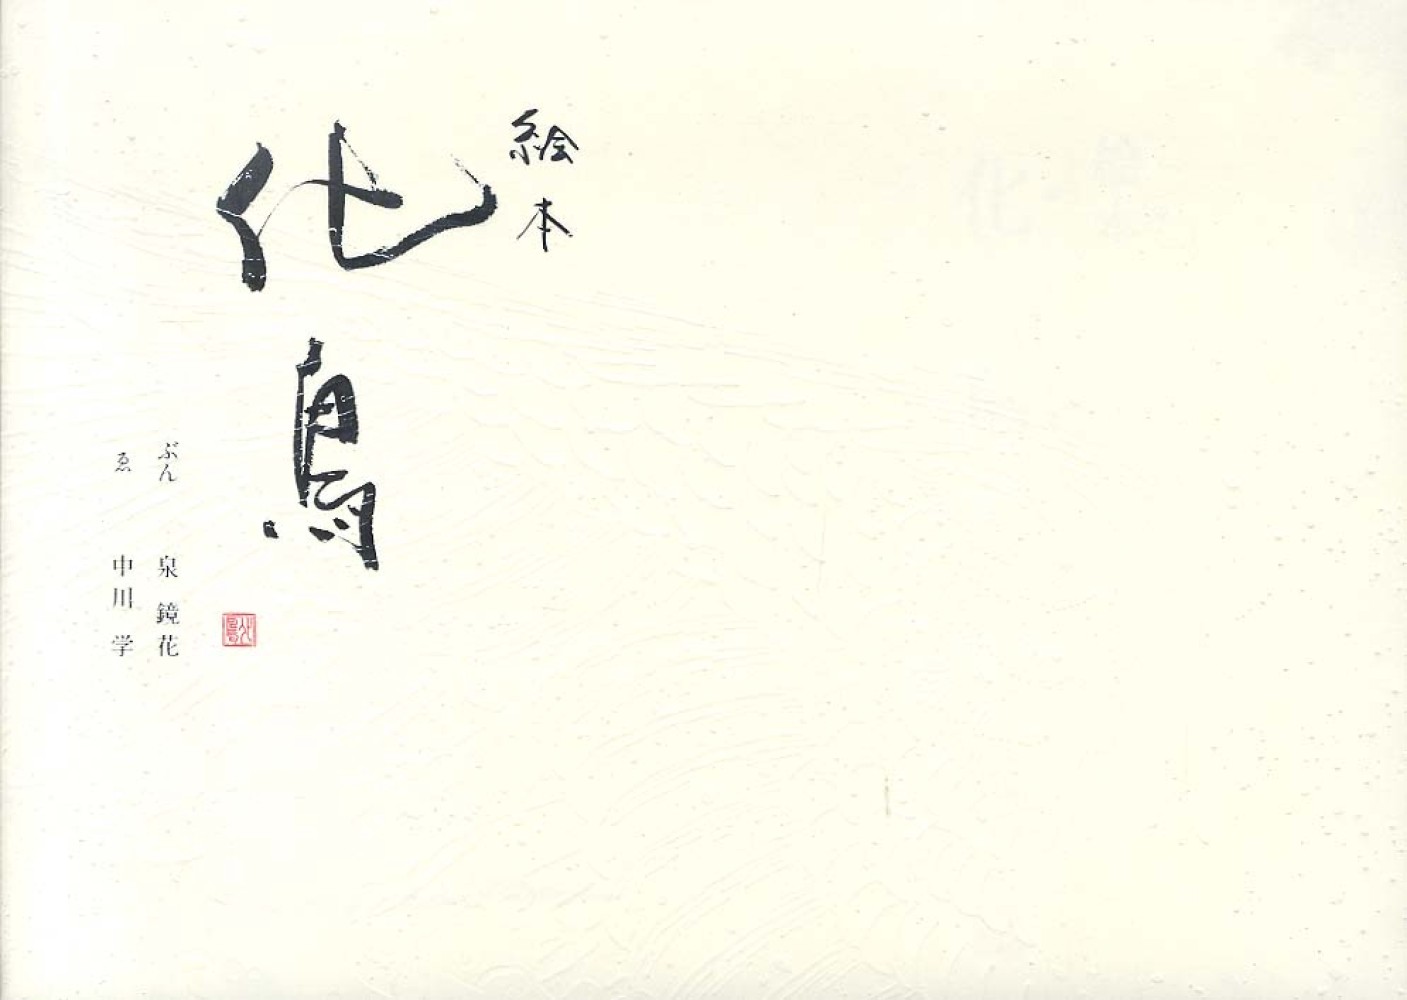 絵本
化鳥
ぶん 泉 鏡花
ゑ 中川 学
化鳥